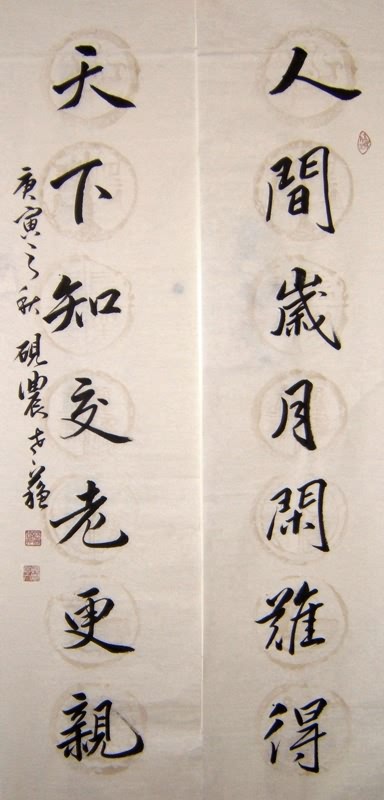 人間歲月閑難得
天下知交老更親
庚寅之秋硯農老蘇